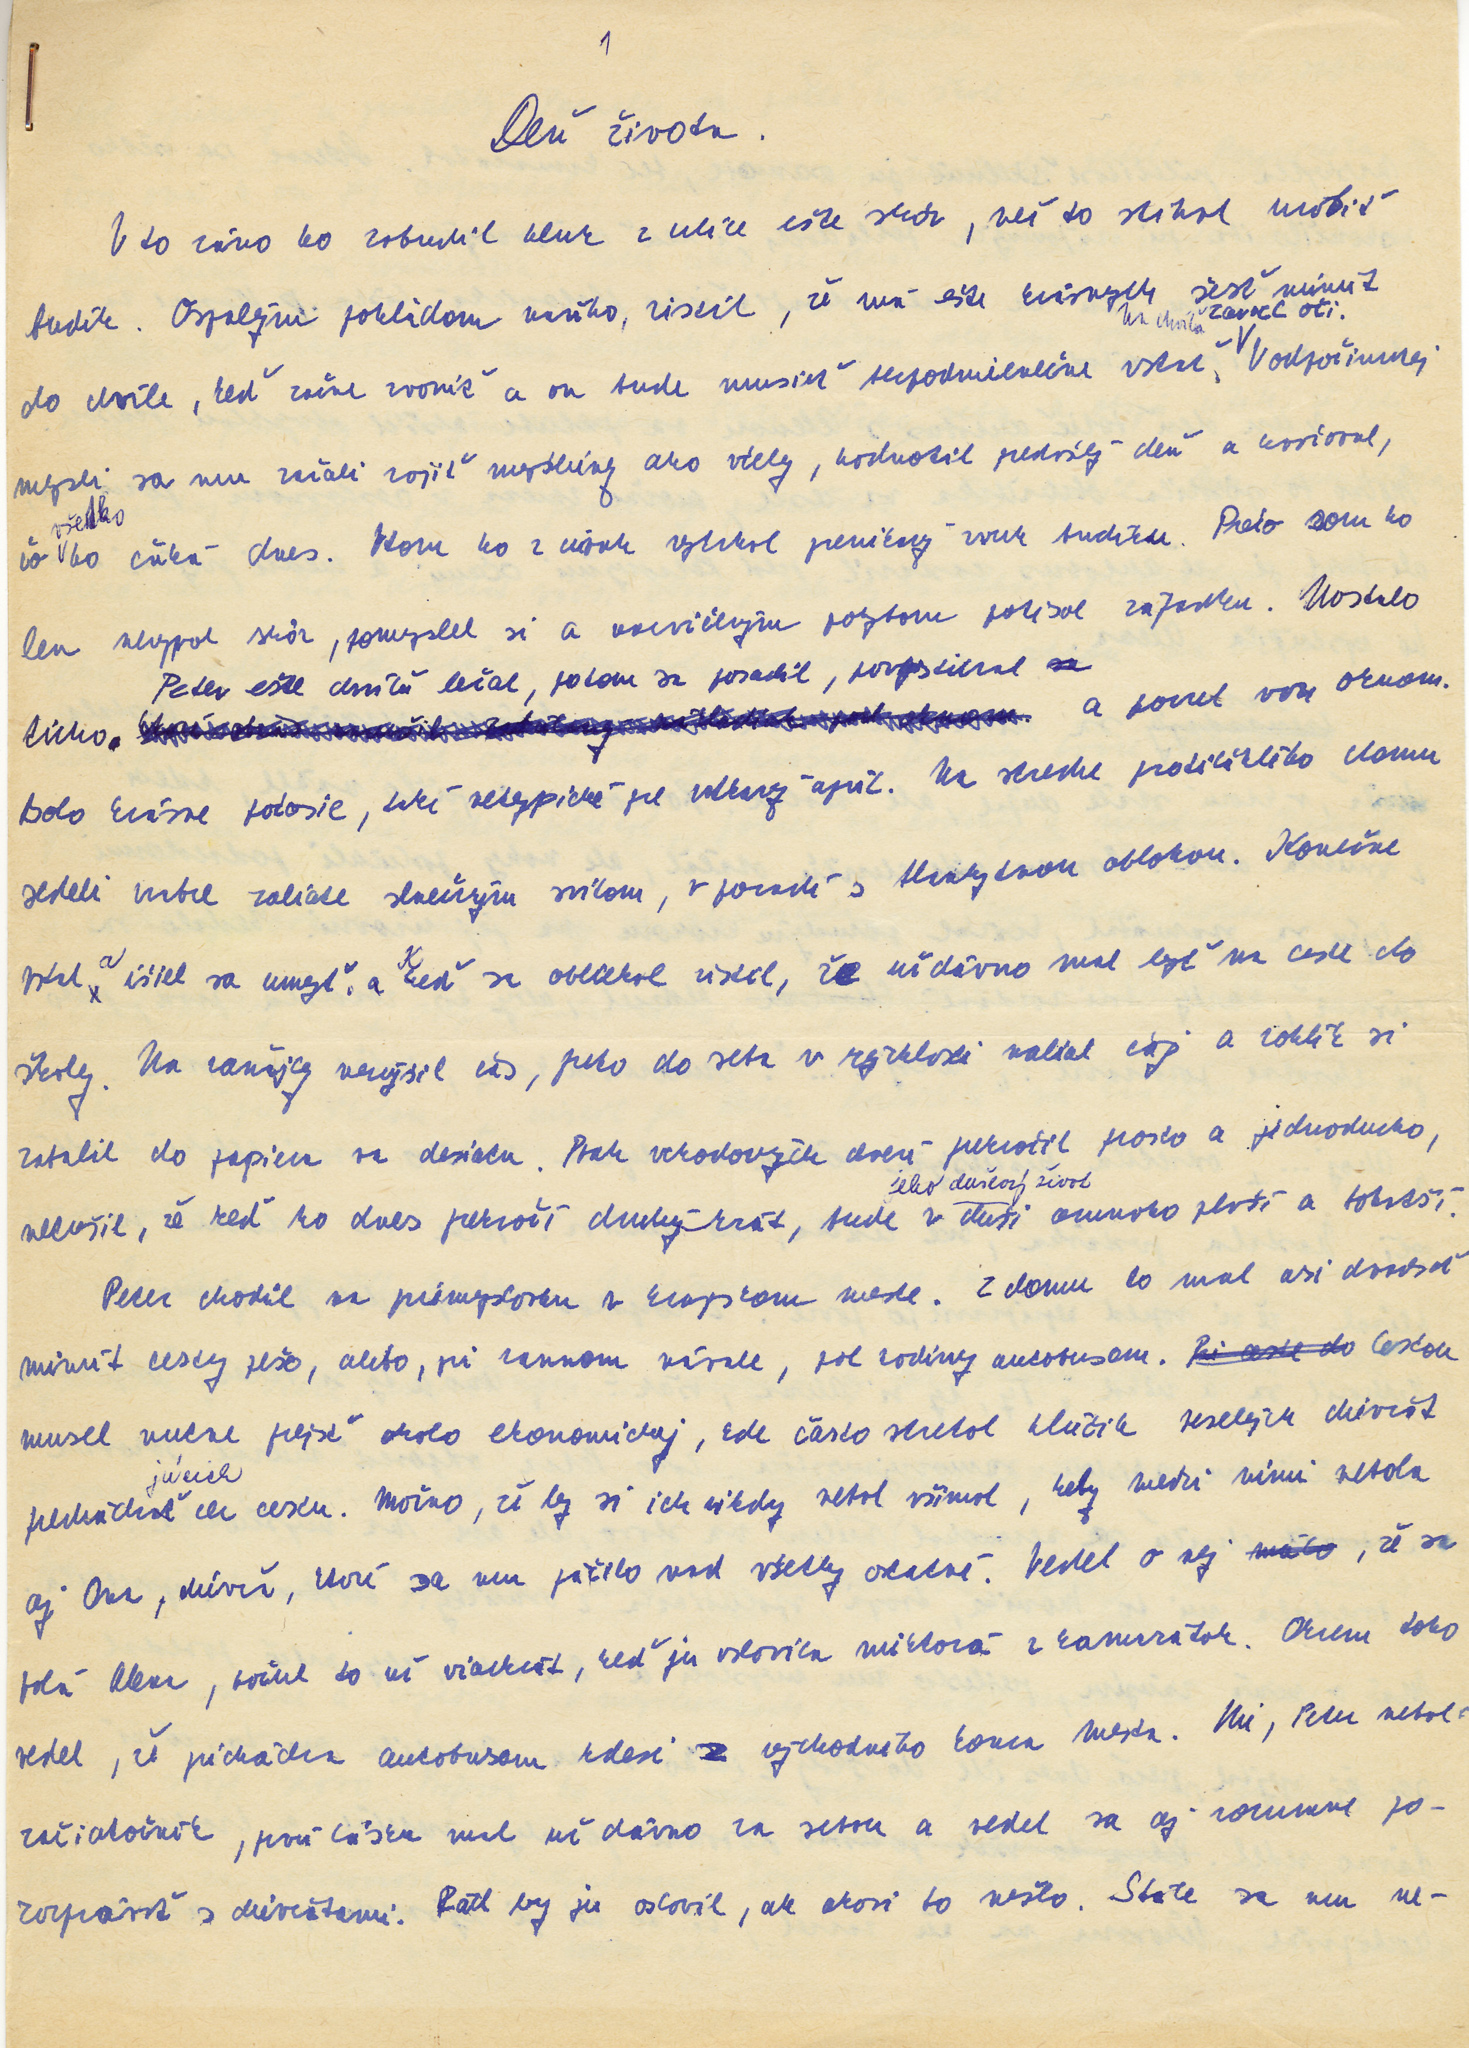 1
Deň života.
V to ráno ho zobudil hluk z ulice ešte skôr, než to stihol urobiť
budík. Ospalým pohľadom naňho, zistil, že má ešte krásnych šesť minút
na chvíľu zavrel oči.
do chvíle, keď začne zvoniť a on bude musieť bezpodmienečne vstať. V odpočinutej
mysli sa mu začali rojiť myšlienky ako včely, hodnotil predošlý deň a
všetko
čo ho čaká dnes. Vtom ho z úvah vytrhol prenikavý zvuk budíku. Prečo som ho
len nevypol skôr, pomyslel si a nacvičeným pohybom potisol západku. Nastalo
Peter ešte chvíľu ležal, potom sa posadil, porozťahoval sa
ticho. a pozrel von oknom.
Bolo krásne počasie, také netypické pre vrtkavý apríl. Na streche protiľahlého domu
sedeli vrabce zaliate slnečným svitom, v pozadí s blankytnou oblohou. Konečne
vstal a išiel sa umyť. a Keď sa obliekal zistil, že už dávno mal byť na ceste do
školy. Na raňajky nezvýšil čas, preto do seba v rýchlosti nalial čaj a rohlík si
zabalil do papiera na desiatu. Prah vchodových dverí prekročil prosto a jednoducho,
jeho duševný život
netušil, že keď ho dnes prekročí druhý krát, bude v duši omnoho plnší a bohatší.
Peter chodil na priemyslovku v krajskom meste. Z domu to mal asi dvadsať
minút cesty pešo, alebo, pri rannom návale, pol hodiny autobusom. Pri ceste do Cestou
musel nutne prejsť okolo ekonomickej, kde často stretol hlúčik veselých dievčat
júcich
prechádzať cez cestu. Možno, že by si ich nikdy nebol všimol, keby medzi nimi nebola
aj Ona, dievča, ktoré sa mu páčilo nad všetky ostatné. Vedel o nej málo, že sa
volá Alena, počul to už viackrát, keď ju oslovila niektorá z kamarátok. Okrem toho
vedel, že prichádza autobusom kdesi z východného konca mesta. Nie, Peter nebol
začiatočník, prvú lásku mal už dávno za sebou a vedel sa aj rozumne po-
rozprávať s dievčatami. Rád by ju oslovil, ale akosi to nešlo. Stále sa mu ne-